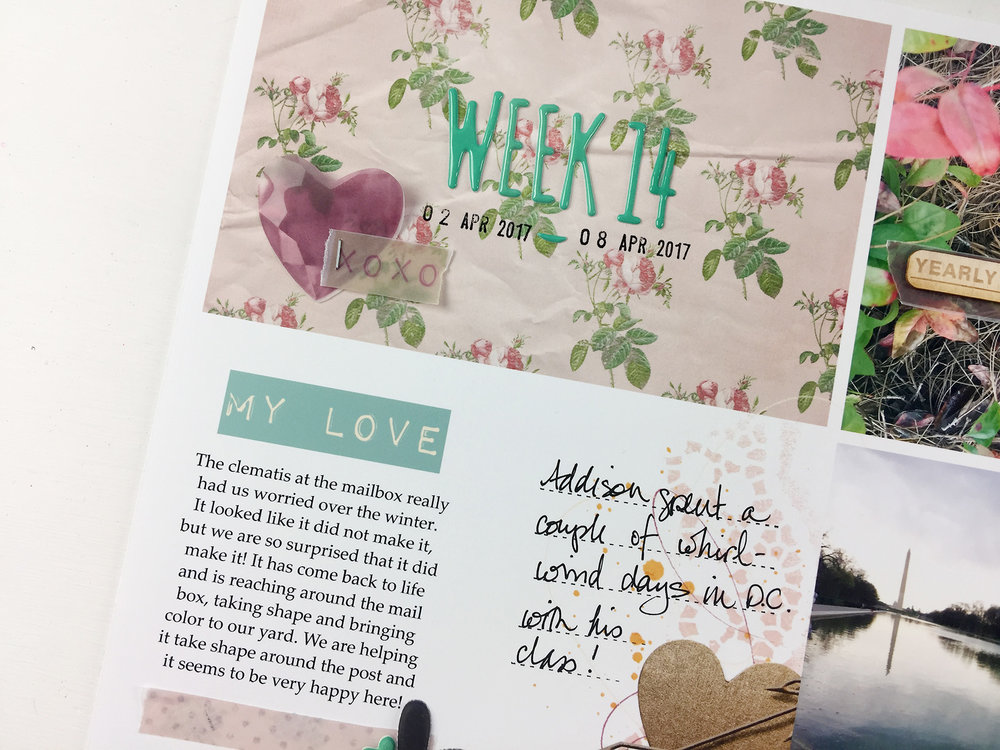 WEEK 14
02 APR 2017 – 08 APR 2017
XOXO
YEARLY
MY LOVE
The clematis at the mailbox really
had us worried over the winter.
It looked like it did not make it,
but we are so surprised that it did
make it! It has come back to life
and is reaching around the mail
box, taking shape and bringing
color to our yard. We are helping
it take shape around the post and
it seems to be very happy here!
Addison spent a
couple of whirl-
wind days in D.C.
with his
class!